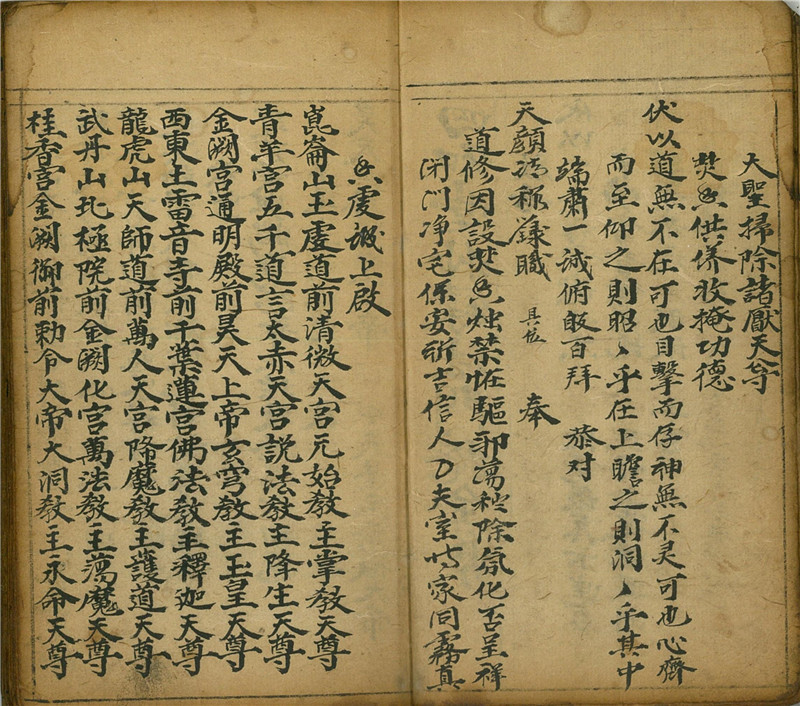 大聖掃除諸厭天尊
焚香供侢收掩功德
伏以道無不在可也目擊而存神無不灵可也心齊
而至仰之則昭〻乎在上瞻之則洞〻乎其中
端肅一誠俯皈百拜 恭对
天顔冯称䥥職 具位 奉
道修因設焚香烛禁怪驅邪蕩秽除氛化否呈祥
闭門净宅保安祈吉信人 夫室 家同霧真
香虔誠上啟
崑崙山玉虛道前清微天宮元始教主掌教天尊
青羊宮五千道言太赤天宮説法教主降生天尊
金闕宮通明殿前昊天上帝玄穹教主玉皇天尊
西東土雷音寺前千葉蓮宮佛法教主釋迦天尊
龍虎山天師道前萬人天宮降魔教主護道天尊
武丹山北極院前金闕化宮萬法教主蕩魔天尊
桂香宮金闕御前勅令大帝大洞教主永命天尊